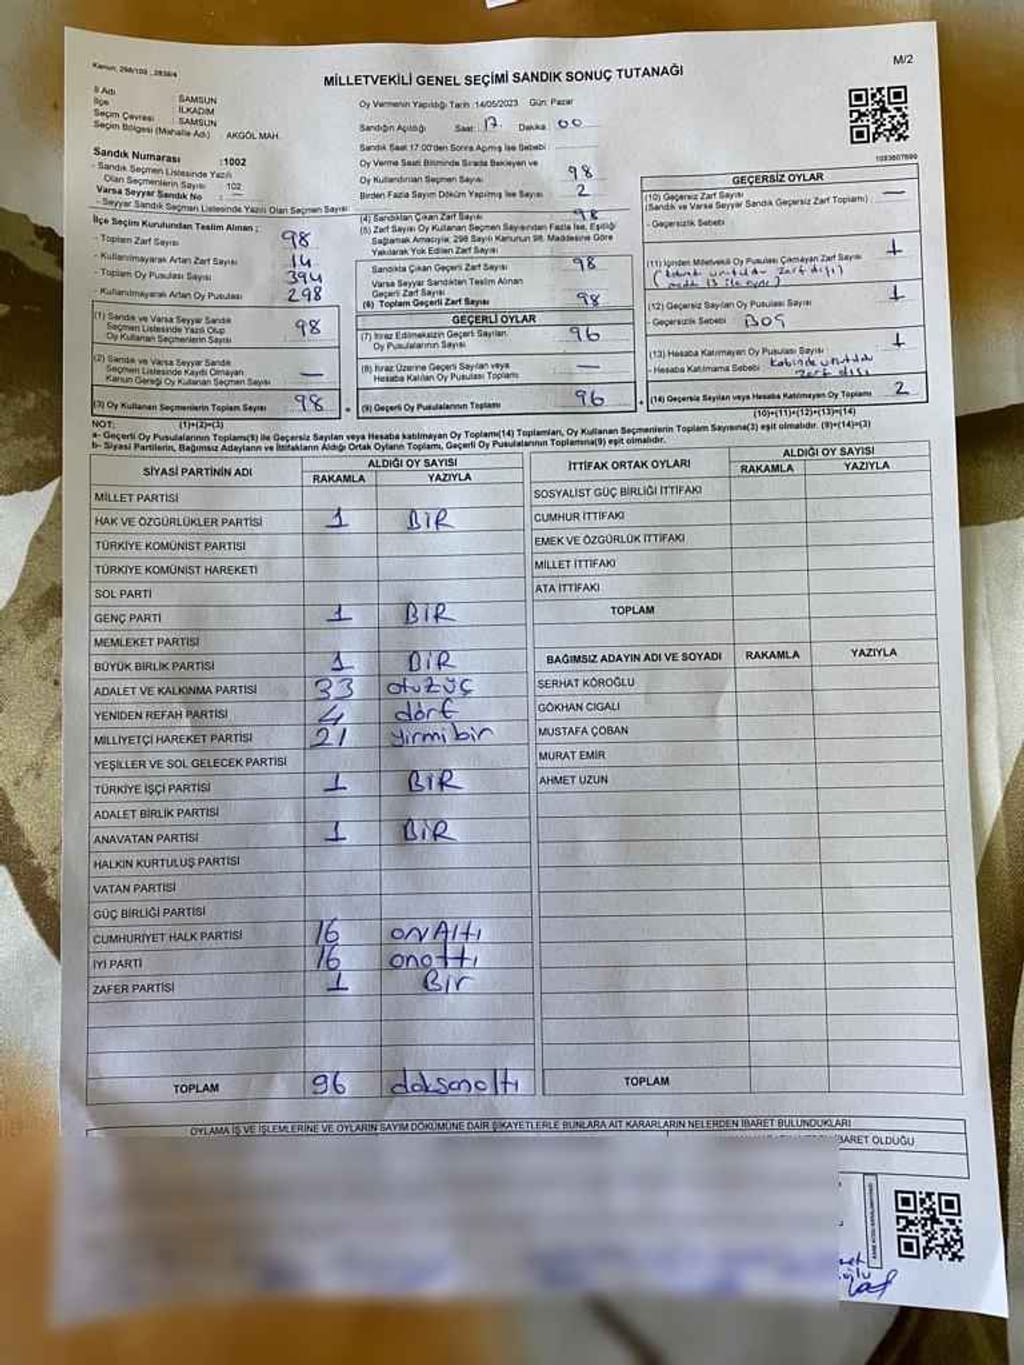 Kanun; 298/103 ; 2839/4
M/2
MİLLETVEKİLİ GENEL SEÇİMİ SANDIK SONUÇ TUTANAĞI
İl Adı : SAMSUN
İlçe : İLKADIM
Seçim Çevresi : SAMSUN
Seçim Bölgesi (Mahalle Adı) : AKGÖL MAH.
Sandık Numarası :1002
- Sandık Seçmen Listesinde Yazılı
Olan Seçmenlerin Sayısı : 102
Varsa Seyyar Sandık No : —
- Seyyar Sandık Seçmen Listesinde Yazılı Olan Seçmen Sayısı:
Oy Vermenin Yapıldığı Tarih :14/05/2023 Gün: Pazar
Sandığın Açıldığı Saat: 17 Dakika: 00
Sandık Saat 17:00'den Sonra Açmış İse Sebebi :
Oy Verme Saati Bitiminde Sırada Bekleyen ve
Oy Kullandırılan Seçmen Sayısı 98
Birden Fazla Sayım Döküm Yapılmış İse Sayısı 2
1083607699
İlçe Seçim Kurulundan Teslim Alınan ;
- Toplam Zarf Sayısı 98
- Kullanılmayarak Artan Zarf Sayısı 14
- Toplam Oy Pusulası Sayısı 394
- Kullanılmayarak Artan Oy Pusulası 298
(1) Sandık ve Varsa Seyyar Sandık
Seçmen Listesinde Yazılı Olup
Oy Kullanan Seçmenlerin Sayısı 98
(2) Sandık ve Varsa Seyyar Sandık
Seçmen Listesinde Kaydı Olmayan
Kanun Gereği Oy Kullanan Seçmen Sayısı —
(3) Oy Kullanan Seçmenlerin Toplam Sayısı 98
(1)+(2)=(3)
(4) Sandıktan Çıkan Zarf Sayısı 98
(5) Zarf Sayısı Oy Kullanan Seçmen Sayısından Fazla İse, Eşitliği
Sağlamak Amacıyla; 298 Sayılı Kanunun 98. Maddesine Göre
Yakılarak Yok Edilen Zarf Sayısı
Sandıkta Çıkan Geçerli Zarf Sayısı 98
Varsa Seyyar Sandıktan Teslim Alınan
Geçerli Zarf Sayısı
(6) Toplam Geçerli Zarf Sayısı 98
GEÇERLİ OYLAR
(7) İtiraz Edilmeksizin Geçerli Sayılan,
Oy Pusulalarının Sayısı 96
(8) İtiraz Üzerine Geçerli Sayılan veya
Hesaba Katılan Oy Pusulası Toplamı —
(9) Geçerli Oy Pusulalarının Toplamı 96
GEÇERSİZ OYLAR
(10) Geçersiz Zarf Sayısı —
(Sandık ve Varsa Seyyar Sandık Geçersiz Zarf Toplamı) :
- Geçersizlik Sebebi
(11) İçinden Milletvekili Oy Pusulası Çıkmayan Zarf Sayısı 1
unutuldu zarf dışı)
(12) Geçersiz Sayılan Oy Pusulası Sayısı 1
- Geçersizlik Sebebi : BOŞ
(13) Hesaba Katılmayan Oy Pusulası Sayısı 1
- Hesaba Katılmama Sebebi : kabinde unutuldu
zarf dışı
(14) Geçersiz Sayılan veya Hesaba Katılmayan Oy Toplamı 2
(10)+(11)+(12)+(13)=(14)
NOT:
a- Geçerli Oy Pusulalarının Toplamı(9) ile Geçersiz Sayılan veya Hesaba katılmayan Oy Toplamı(14) Toplamları, Oy Kullanan Seçmenlerin Toplam Sayısına(3) eşit olmalıdır. (9)+(14)=(3)
b- Siyasi Partilerin, Bağımsız Adayların ve İttifakların Aldığı Ortak Oyların Toplamı, Geçerli Oy Pusulalarının Toplamına(9) eşit olmalıdır.
SİYASİ PARTİNİN ADI ALDIĞI OY SAYISI
RAKAMLA YAZIYLA
MİLLET PARTİSİ
HAK VE ÖZGÜRLÜKLER PARTİSİ 1 BİR
TÜRKİYE KOMÜNİST PARTİSİ
TÜRKİYE KOMÜNİST HAREKETİ
SOL PARTİ
GENÇ PARTİ 1 BİR
MEMLEKET PARTİSİ
BÜYÜK BİRLİK PARTİSİ 1 BİR
ADALET VE KALKINMA PARTİSİ 33 otuzüç
YENİDEN REFAH PARTİSİ 4 dört
MİLLİYETÇİ HAREKET PARTİSİ 21 yirmibir
YEŞİLLER VE SOL GELECEK PARTİSİ
TÜRKİYE İŞÇİ PARTİSİ 1 BİR
ADALET BİRLİK PARTİSİ
ANAVATAN PARTİSİ 1 BİR
HALKIN KURTULUŞ PARTİSİ
VATAN PARTİSİ
GÜÇ BİRLİĞİ PARTİSİ
CUMHURİYET HALK PARTİSİ 16 onAltı
İYİ PARTİ 16 onaltı
ZAFER PARTİSİ 1 Bir
TOPLAM 96 doksanaltı
İTTİFAK ORTAK OYLARI ALDIĞI OY SAYISI
RAKAMLA YAZIYLA
SOSYALİST GÜÇ BİRLİĞİ İTTİFAKI
CUMHUR İTTİFAKI
EMEK VE ÖZGÜRLÜK İTTİFAKI
MİLLET İTTİFAKI
ATA İTTİFAKI
TOPLAM
BAĞIMSIZ ADAYIN ADI VE SOYADI RAKAMLA YAZIYLA
SERHAT KÖROĞLU
GÖKHAN CIGALI
MUSTAFA ÇOBAN
MURAT EMİR
AHMET UZUN
TOPLAM
OYLAMA İŞ VE İŞLEMLERİNE VE OYLARIN SAYIM DÖKÜMÜNE DAİR ŞİKAYETLERLE BUNLARA AİT KARARLARIN NELERDEN İBARET BULUNDUKLARI
İBARET OLDUĞU